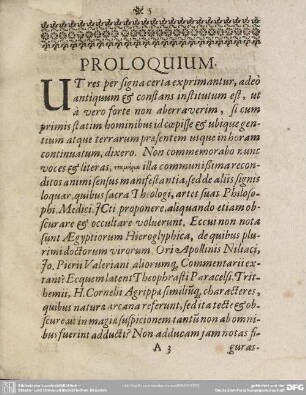 3
PROLOQUIUM.
UT res per signa certa exprimantur, adeò
antiquum & constans institutum est, ut
à vero forte non aberraverim, si cum
primis statim hominibus id cœpisse & ubique gen-
tium atque terrarum præsentem usque in horam
continuatum, dixero. Non commemorabo nunc
voces & literas, illa communissima recon-
ditos animi sensus manifestantia, sed de aliis signis
loquar, quibus sacra Theologi, artes suas Philoso-
phi, Medici, JCti proponere, aliquando etiam ob-
scurare & occultare voluerunt. Eccui non nota
sunt Ægyptiorum Hieroglyphica, de quibus plu-
rimi doctorum virorum, Ori Apollinis Niliaci,
Jo. Pierii Valeriani, aliorumq; Commentarii ex-
tant? Ecquem latent Theophrasti Paracelsi, Trit-
hemii, H. Cornelii Agrippæ similiumq; characteres,
quibus naturæ arcana referunt, sed ita tecte & ob-
scure ut in magiæ suspicionem tantùm non ab omni-
bus fuerint adducti? Non adducam jam notas fi-
A 3 guras-